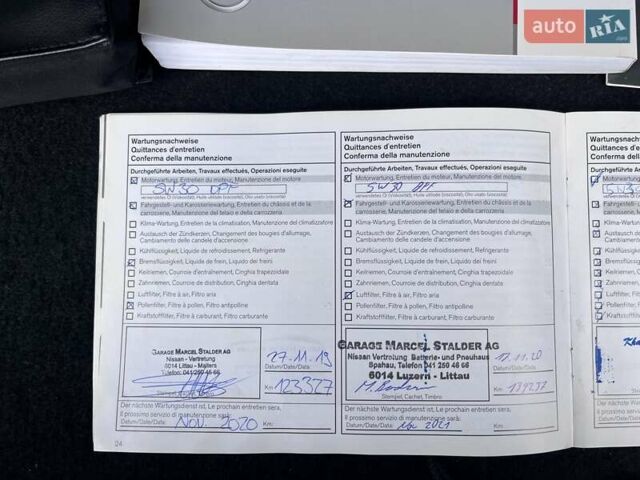 auto RIA
.com
Wartungsnachweise
Quittances d'entretien
Conferma della manutenzione
Durchgeführte Arbeiten, Travaux effectués, Operazioni eseguite
Motorwartung, Entretien du moteur, Manutenzione del motore
5W30 DPF
verwendetes Öl (Viskosität), Huile utilisée (viscosité), Olio usato (viscosità)
Fahrgestell- und Karosseriewartung, Entretien du châssis et de la
carrosserie, Manutenzione del telaio e della carrozzeria
Klima-Wartung, Entretien de la climatisation, Manutenzione del climatizzatore
Austausch der Zündkerzen, Changement des bougies d'allumage,
Cambiamento delle candele d'accensione
Kühlflüssigkeit, Liquide de refroidissement, Refrigerante
Bremsflüssigkeit, Liquide de frein, Liquido dei freini
Keilriemen, Courroie d'entraînement, Cinghia trapezoidale
Zahnriemen, Courroie de distribution, Cinghia dentata
Luftfilter, Filtre à air, Filtro aria
Pollenfilter, Filtre à pollen, Filtro antipolline
Kraftstofffilter, Filtre à carburant, Filtro carburante
GARAGE MARCEL STALDER AG
Nissan - Vertretung
6014 Littau - Malters
Telefon 041/250 46 66
27.11.19
Datum/Date/Data
Km: 123327
Der nächste Wartungsdienst ist, Le prochain entretien sera,
Il prossimo servizio di manutenzione sarà:
Datum/Date/Data: Nov. 2020 Km:
24
Wartungsnachweise
Quittances d'entretien
Conferma della manutenzione
Durchgeführte Arbeiten, Travaux effectués, Operazioni eseguite
Motorwartung, Entretien du moteur, Manutenzione del motore
5W30
verwendetes Öl (Viskosität), Huile utilisée (viscosité), Olio usato (viscosità)
Fahrgestell- und Karosseriewartung, Entretien du châssis et de la
carrosserie, Manutenzione del telaio e della carrozzeria
Klima-Wartung, Entretien de la climatisation, Manutenzione del climatizzatore
Austausch der Zündkerzen, Changement des bougies d'allumage,
Cambiamento delle candele d'accensione
Kühlflüssigkeit, Liquide de refroidissement, Refrigerante
Bremsflüssigkeit, Liquide de frein, Liquido dei freini
Keilriemen, Courroie d'entraînement, Cinghia trapezoidale
Zahnriemen, Courroie de distribution, Cinghia dentata
Luftfilter, Filtre à air, Filtro aria
Pollenfilter, Filtre à pollen, Filtro antipolline
Kraftstofffilter, Filtre à carburant, Filtro carburante
GARAGE MARCEL STALDER AG
Nissan Vertretung Batterie- und Pneuhaus
Spahau, Telefon 041 250 46 66
6014 Luzern - Littau
Stempel, Cachet, Timbro
12.11.20
Datum/Date/Data
Km:
Der nächste Wartungsdienst ist, Le prochain entretien sera,
Il prossimo servizio di manutenzione sarà:
Datum/Date/Data: 2021 Km: